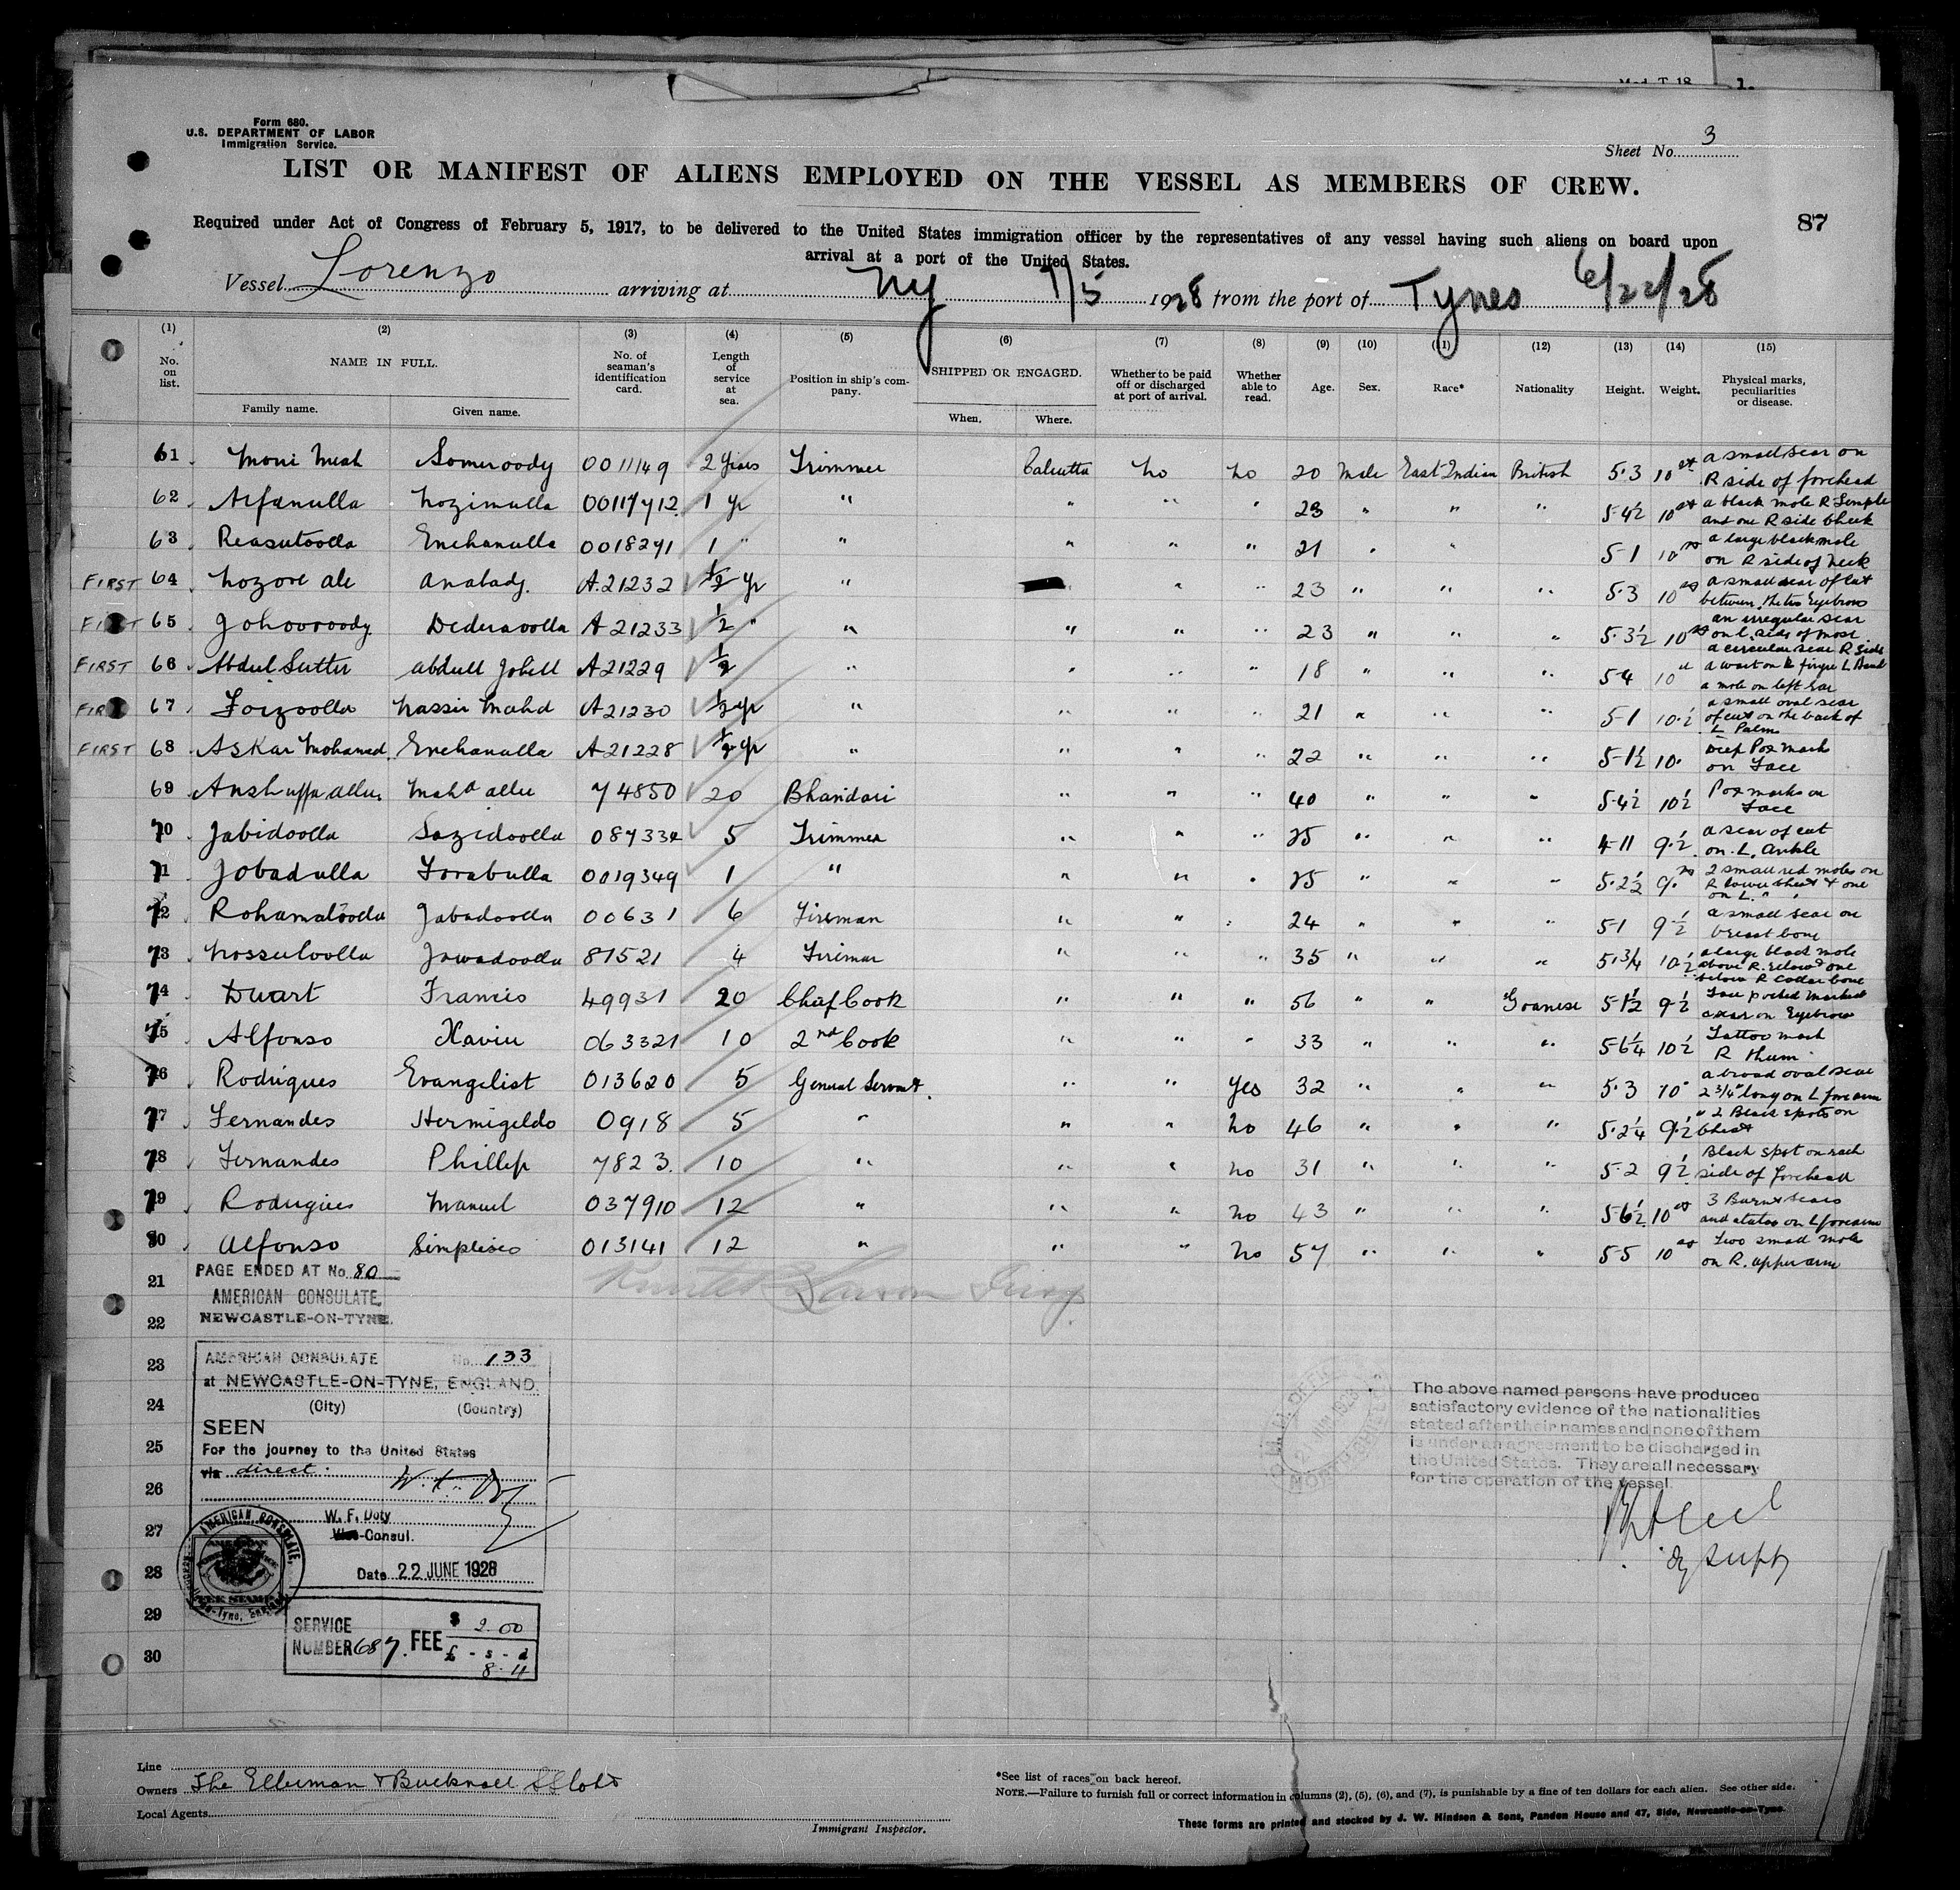 Form 680.
U.S. DEPARTMENT OF LABOR
Immigration Service.
Sheet No. 3
LIST OR MANIFEST OF ALIENS EMPLOYED ON THE VESSEL AS MEMBERS OF CREW.
87
Required under Act of Congress of February 5, 1917, to be delivered to the United States immigration officer by the representatives of any vessel having such aliens on board upon
arrival at a port of the United States.
Vessel Lorenzo arriving at NY 7/5 1928 from the port of Tynes 6/22/28
(1) (2) (3) (4) (5) (6) (7) (8) (9) (10) (11) (12) (13) (14) (15)
No. on list. NAME IN FULL. Family name. Given name. No. of seaman's identification card. Length of service at sea. Position in ship's company. SHIPPED OR ENGAGED. When. Where. Whether to be paid off or discharged at port of arrival. Whether able to read. Age. Sex. Race* Nationality Height. Weight. Physical marks, peculiarities or disease.
61 Moni Meah Someroody 0011149 2 years Trimmer Calcutta No No 20 Male East Indian British 5·3 10 st a small scar on R side of forehead
62 Arfanulla Nozimulla 00117712 1 yr " " " " 23 " " " 5-4½ 10 st a black mole R Temple and one R side Cheek
63 Reasutoolla Enchanulla 0018291 1 " " " " " 21 " " 5-1 10 a large black mole on R side of Neck
FIRST 64 Nozore Ale Anabady A.21232 ½ yr " " " 23 " " " 5·3 10 a small scar of cut between the two Eyebrows
FIRST 65 Johoroody Dederavolla A 21233 ½ " " " " " 23 " " " 5·3½ 10 an irregular scar on L. side of nose a circular scar R side
FIRST 66 Abdul Sutter Abdull Jobell A21229 ½ " " " " 18 " " " 5-4 10 a wart on finger L Hand a mole on left Ear
FIRST 67 Foizoolla Nassir Mahd A21230 ½ yr " " " " 21 " " " 5-1 10·½ a small oval scar of cut on the back of L Palm
FIRST 68 Askar Mohamed Enchanulla A-21228 ½ yr " " " " 22 " " " 5-1½ 10· Deep Pox Mark on Face
69 Mahd allu 74850 20 Bhandari " " " 40 " " " 5·4½ 10½ Pox marks on Face
70 Jabidoolla Sazidoolla 087334 5 Trimmer " " " 25 " " " 4-11 9·½ a scar of cut on L. Ankle
71 Jobadulla Torabulla 0019349 1 " " " " 25 " " " 5·2½ 9· 2 small red moles on R lower chest & one on L. "
72 Rohamatoolla Jabadoolla 00631 6 Fireman " " " 24 " " " 5-1 9½ a small scar on breast bone
73 Nossutoolla Jawadoolla 81521 4 Fireman " " " 35 " " " 5·1¾ 10·½ a large black mole above R. Elbow & one below R Collar bone
74 Duart Francis 49931 20 Chief Cook " " " 56 " " Goanese 5-1½ 9½ Face pocked Marked scar on Eyebrow
75 Alfonso Xavier 063321 10 2nd Cook " " " 33 " " " 5-6¼ 10½ Tattoo mark R thum
76 Rodrigues Evangelist 013620 5 General Servant " " Yes 32 " " " 5·3 10 a broad oval scar 2¾" long on L forearm
77 Fernandes Hermigeldo 0918 5 " " " No 46 " " " 5·2¼ 9·½ 2 Black spots on Chest
78 Fernandes Phillip 7823. 10 " " " No 31 " " " 5·2 9½ Black spot on each side of Forehead
79 Rodrigues Manuel 037910 12 " " " No 43 " " " 5-6½ 10 3 Burnt Scars and atatoo on L forearm
80 Alfonso Simplisio 013141 12 " " " No 57 " " " 5-5 10 Two small mole on R. upper arm
21
PAGE ENDED AT No. 80
AMERICAN CONSULATE
NEWCASTLE-ON-TYNE.
22
23
AMERICAN CONSULATE No. 133
at NEWCASTLE-ON-TYNE, ENGLAND
24
(City) (Country)
SEEN
25
For the journey to the United States
via direct.
26
W. F. Doty
27
Vice-Consul.
28
Date 22 JUNE 1928
AMERICAN CONSULATE,
29
SERVICE NUMBER 687. FEE $ 2.00
£ - s - d
8·4
30
The above named persons have produced
satisfactory evidence of the nationalities
stated after their names and none of them
is under an agreement to be discharged in
the United States. They are all necessary
for the operation of the vessel.
Line
Owners The Ellerman & Bucknall SS Co Ld
Local Agents
Immigrant Inspector.
*See list of races on back hereof.
NOTE.—Failure to furnish full or correct information in columns (2), (5), (6), and (7), is punishable by a fine of ten dollars for each alien. See other side.
These forms are printed and stocked by J. W. Hindson & Sons, Pandon House and 47, Side, Newcastle-on-Tyne.